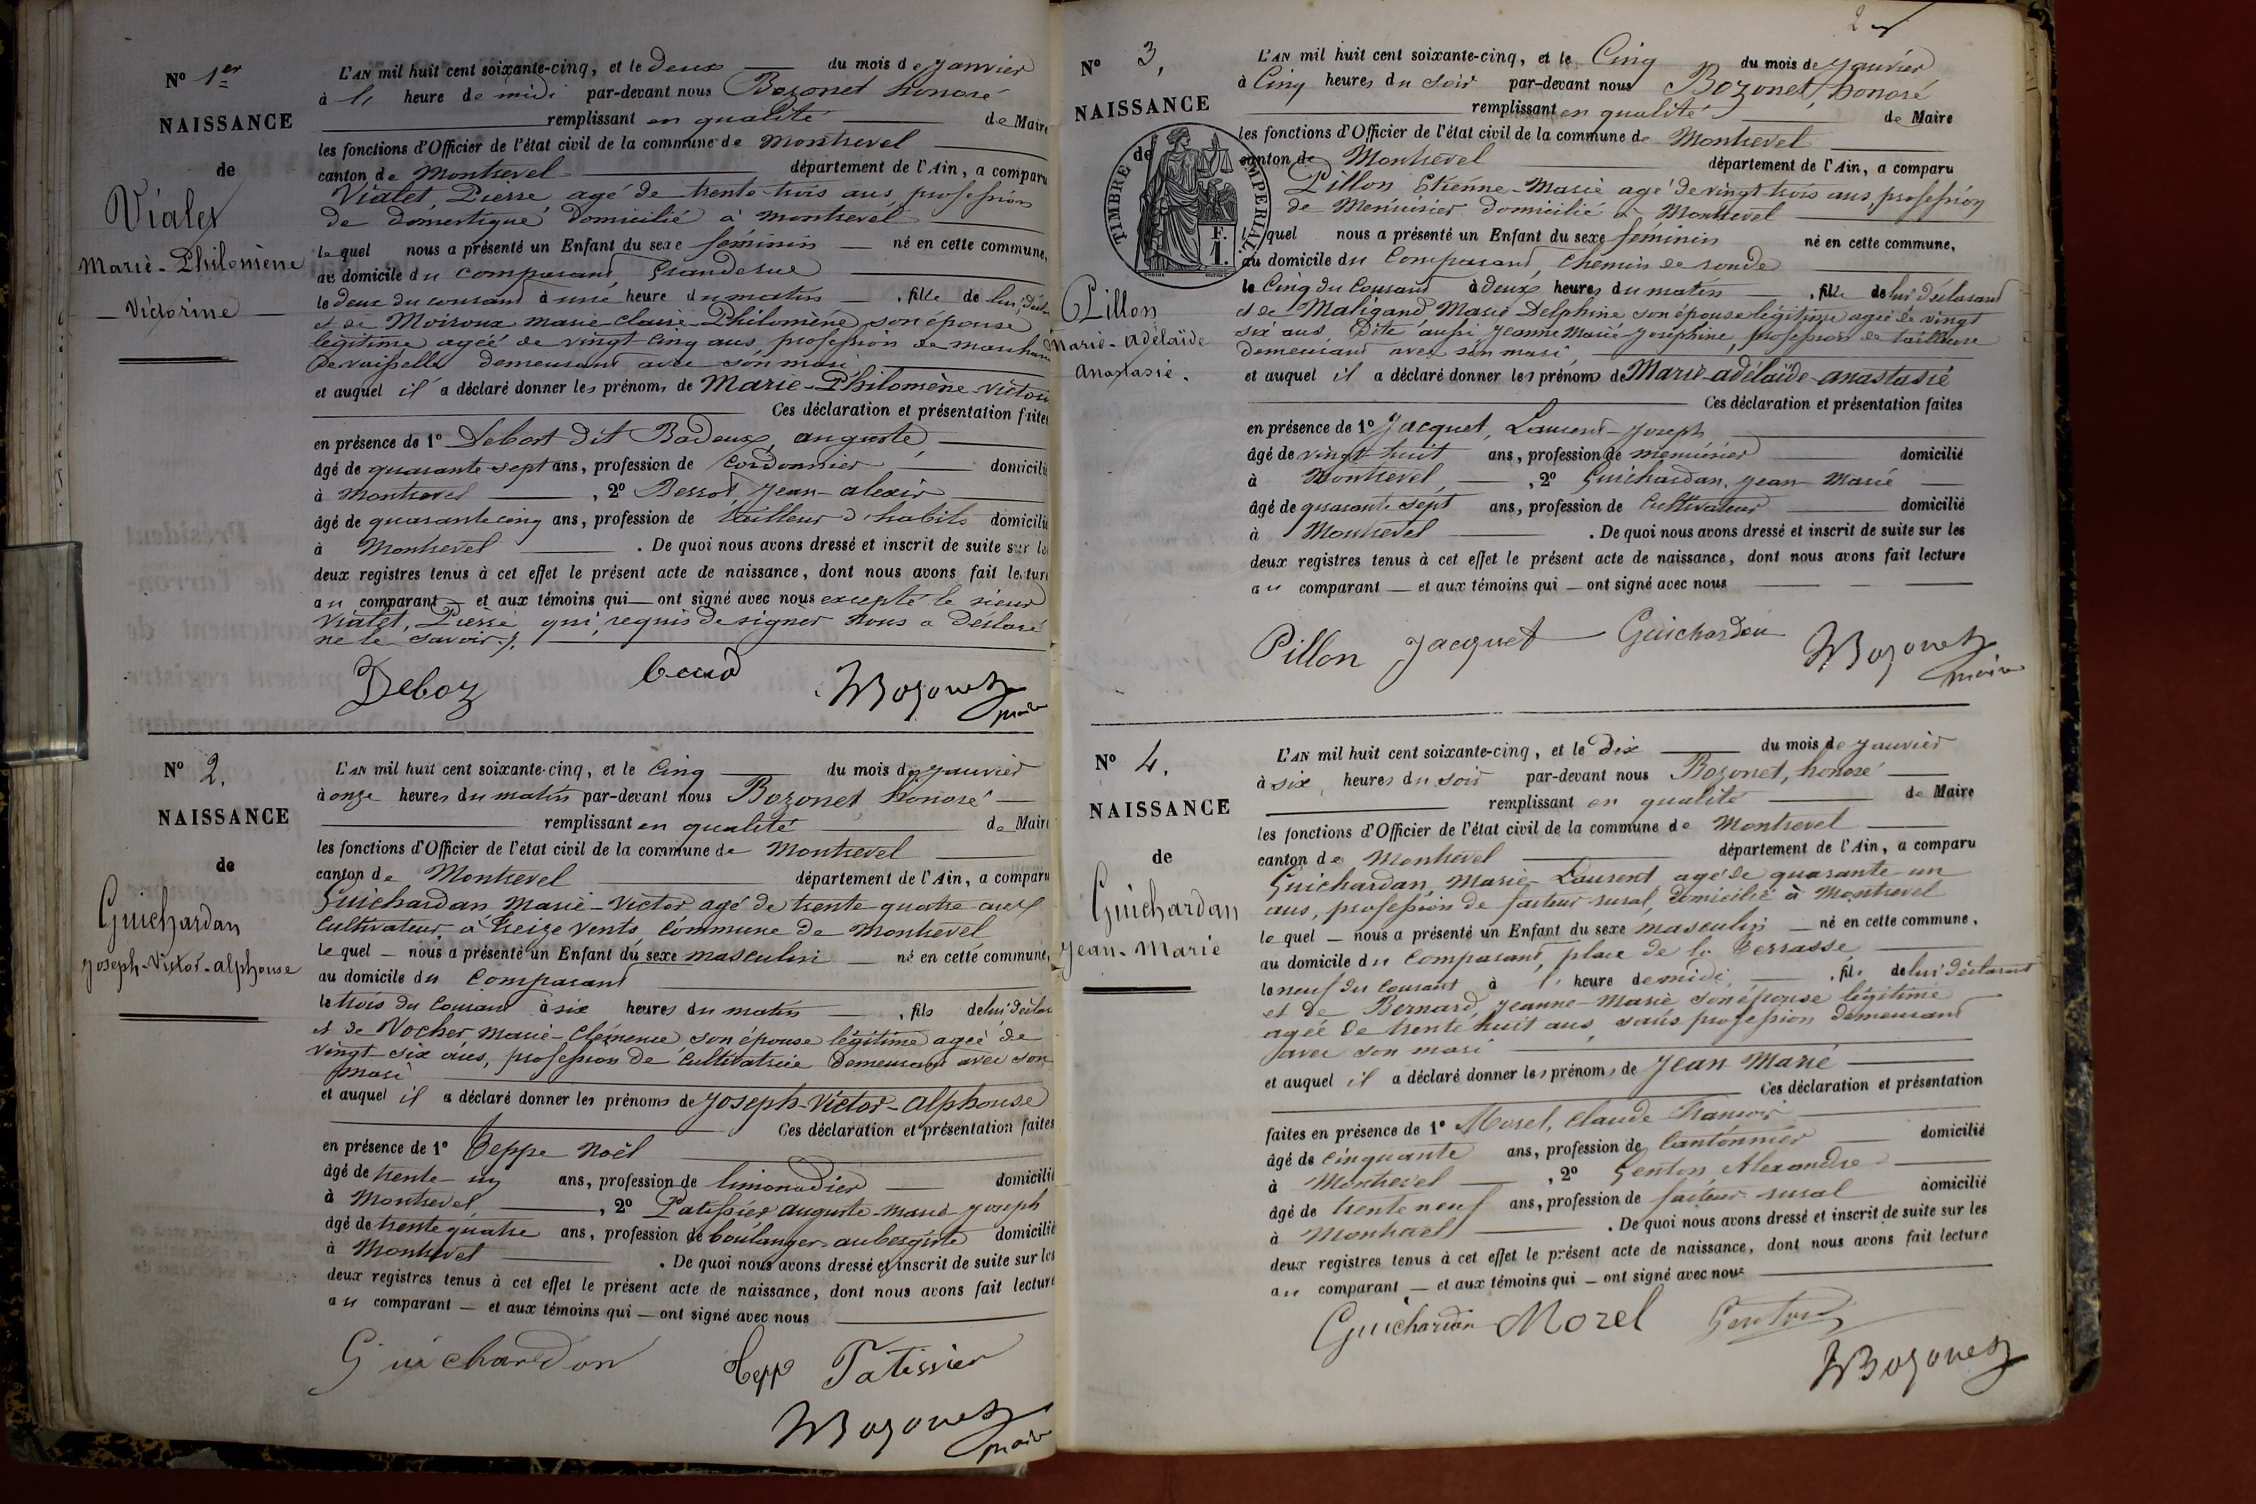 N° 1er
NAISSANCE
de
Vialet
Marie-Philomène
Victorine
L'AN mil huit cent soixante-cinq, et le deux du mois de janvier
à l' heure de midi par-devant nous Bozonet honoré
remplissant en qualité de Maire
les fonctions d'Officier de l'état civil de la commune de Montrevel
canton de Montrevel département de l'Ain, a comparu
Vialet, Pierre agé de trente trois ans, profession
de domestique domicilié à Montrevel
lequel nous a présenté un Enfant du sexe féminin né en cette commune,
au domicile du comparant, Granderue
le deux du courant à une heure du matin, fille de lui, décl
et de Moiroux marie-claire-Philomène son épouse
légitime agée de vingt cinq ans profession de marchan
de vaisselle demeurant avec son mari
et auquel il a déclaré donner les prénoms de Marie-Philomène-Victori
Ces déclaration et présentation faites
en présence de 1° Debost dit Badoux, auguste
âgé de quarante sept ans, profession de Cordonnier domicilié
à Montrevel, 2° Jean-alexis
âgé de quarante cinq ans, profession de tailleur d'habits domicilié
à Montrevel. De quoi nous avons dressé et inscrit de suite sur les
deux registres tenus à cet effet le présent acte de naissance, dont nous avons fait lecture
au comparant et aux témoins qui ont signé avec nous excepté le sieur
Vialet, Pierre qui, requis de signer nous a déclaré
ne le savoir.
Deboz Bozonet
maire
N° 2.
NAISSANCE
de
Guichardan
Joseph-Victor-alphonse
L'AN mil huit cent soixante-cinq, et le Cinq du mois de janvier
à onze heures du matin par-devant nous Bozonet honoré
remplissant en qualité de Maire
les fonctions d'Officier de l'état civil de la commune de Montrevel
canton de Montrevel département de l'Ain, a comparu
Guichardan Marie-Victor agé de trente quatre ans
Cultivateur à treize vents, Commune de Montrevel
lequel nous a présenté un Enfant du sexe masculin né en cette commune,
au domicile du Comparant
le trois du Courant à six heures du matin, fils de lui déclar
et de Vocher Marie-Clémence, son épouse légitime agée de
vingt-six ans, profession de Cultivatrice demeurant avec son
mari
et auquel il a déclaré donner les prénoms de Joseph-Victor-alphonse
Ces déclaration et présentation faites
en présence de 1° Teppe Noël
âgé de trente-un ans, profession de limonadier domicilié
à Montrevel, 2° Patissier auguste-marie-joseph
âgé de trente quatre ans, profession de boulanger-aubergiste domicilié
à Montrevel. De quoi nous avons dressé et inscrit de suite sur les
deux registres tenus à cet effet le présent acte de naissance, dont nous avons fait lecture
au comparant et aux témoins qui ont signé avec nous
Guichardon Tepp Patissier
Bozonet
maire
2
N° 3,
NAISSANCE
de
TIMBRE IMPERIAL
F.
1.
Pillon
Marie-adélaïde
anastasie.
L'AN mil huit cent soixante-cinq, et le Cinq du mois de janvier
à Cinq heures du soir par-devant nous Bozonet, honoré
remplissant en qualité de Maire
les fonctions d'Officier de l'état civil de la commune de Montrevel
canton de Montrevel département de l'Ain, a comparu
Pillon Etienne-Marie agé de vingt trois ans, profession
de Menuisier domicilié à Montrevel
lequel nous a présenté un Enfant du sexe féminin né en cette commune,
au domicile du Comparant, Chemin de ronde
le Cinq du Courant à deux heures du matin, fille de lui déclarant
et de Maligand, Marie Delphine son épouse légitime agée de vingt
six ans, Dite aussi Jeanne Marie Joséphine, profession de tailleuse
demeurant avec son mari,
et auquel il a déclaré donner les prénoms de Marie-adélaïde-anastasie
Ces déclaration et présentation faites
en présence de 1° Jacquet, Laurent-Joseph
âgé de vingt huit ans, profession de menuisier domicilié
à Montrevel, 2° Guichardan, jean-Marie
âgé de quarante sept ans, profession de Cultivateur domicilié
à Montrevel. De quoi nous avons dressé et inscrit de suite sur les
deux registres tenus à cet effet le présent acte de naissance, dont nous avons fait lecture
au comparant et aux témoins qui ont signé avec nous
Pillon Jacquet Guichardon Bozonet
maire
N° 4.
NAISSANCE
de
Guichardan
Jean-Marie
L'AN mil huit cent soixante-cinq, et le Dix du mois de janvier
à six heures du soir par-devant nous Bozonet, honoré
remplissant en qualité de Maire
les fonctions d'Officier de l'état civil de la commune de Montrevel
canton de Montrevel département de l'Ain, a comparu
Guichardan, Marie-Laurent agé de quarante un
ans, profession de facteur rural, domicilié à Montrevel
lequel nous a présenté un Enfant du sexe masculin né en cette commune,
au domicile du Comparant, place de la Terrasse
le neuf du Courant à l' heure de midi, fils de lui déclarant
et de Bernard, Jeanne-Marie son épouse légitime
agée de trente huit ans, sans profession demeurant
avec son mari
et auquel il a déclaré donner les prénoms de Jean Marie
Ces déclaration et présentation
faites en présence de 1° Morel, Claude François
âgé de cinquante ans, profession de Cantonnier domicilié
à Montrevel, 2° Genton, Alexandre
âgé de trente neuf ans, profession de facteur rural domicilié
à Montrevel. De quoi nous avons dressé et inscrit de suite sur les
deux registres tenus à cet effet le présent acte de naissance, dont nous avons fait lecture
au comparant et aux témoins qui ont signé avec nous
Guichardan Morel Genton
Bozonet